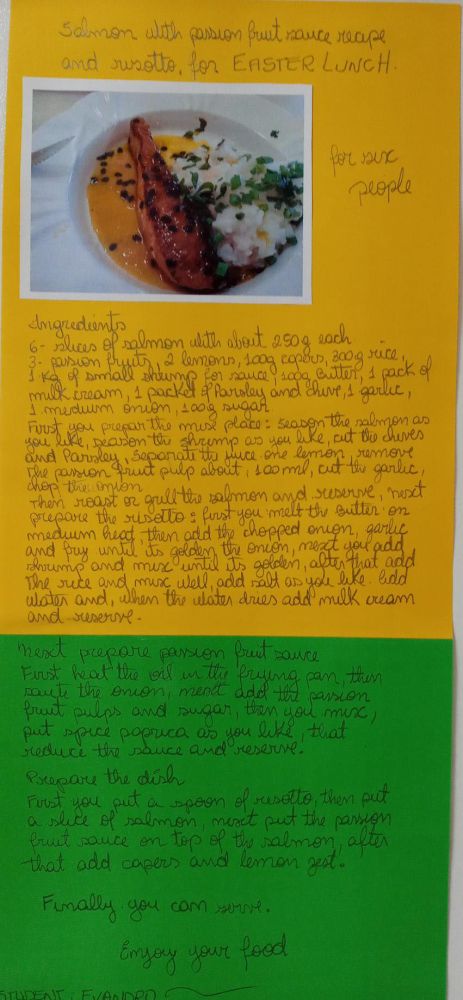 Salmon with passion fruit sauce recipe
and risotto, for EASTER LUNCH.
for six
people
Ingredients
6- slices of salmon with about 250g each
3- passion fruits, 2 lemons, 100g capers, 300g rice,
1 Kg of small shrimp for sauce, 100g butter, 1 pack of
milk cream, 1 packet of Parsley and chive, 1 garlic,
1 medium onion, 100g sugar.
First you prepar the mise place: season the salmon as
you like, season the shrimp as you like, cut the chives
and Parsley, separate the juice one lemon, remove
the passion fruit pulp about, 100ml, cut the garlic,
chop the onion
Then roast or grill the salmon and reserve, next
prepare the risotto: first you melt the butter on
medium heat, then add the chopped onion, garlic
and fry until its golden the onion, next you add
shrimp and mix until its golden, after that add
the rice and mix well, add salt as you like. Add
water and, when the water dries add milk cream
and reserve.
Next prepare passion fruit sauce
First heat the oil in the frying pan, then
saute the onion, next add the passion
fruit pulps and sugar, then you mix,
put spice paprica as you like, that
reduce the sauce and reserve.
Prepare the dish
First you put a spoon of resotto, then put
a slice of salmon, next put the passion
fruit sauce on top of the salmon, after
that add capers and lemon zest.
Finally you can serve.
Enjoy your food
STUDENT: EVANDRO